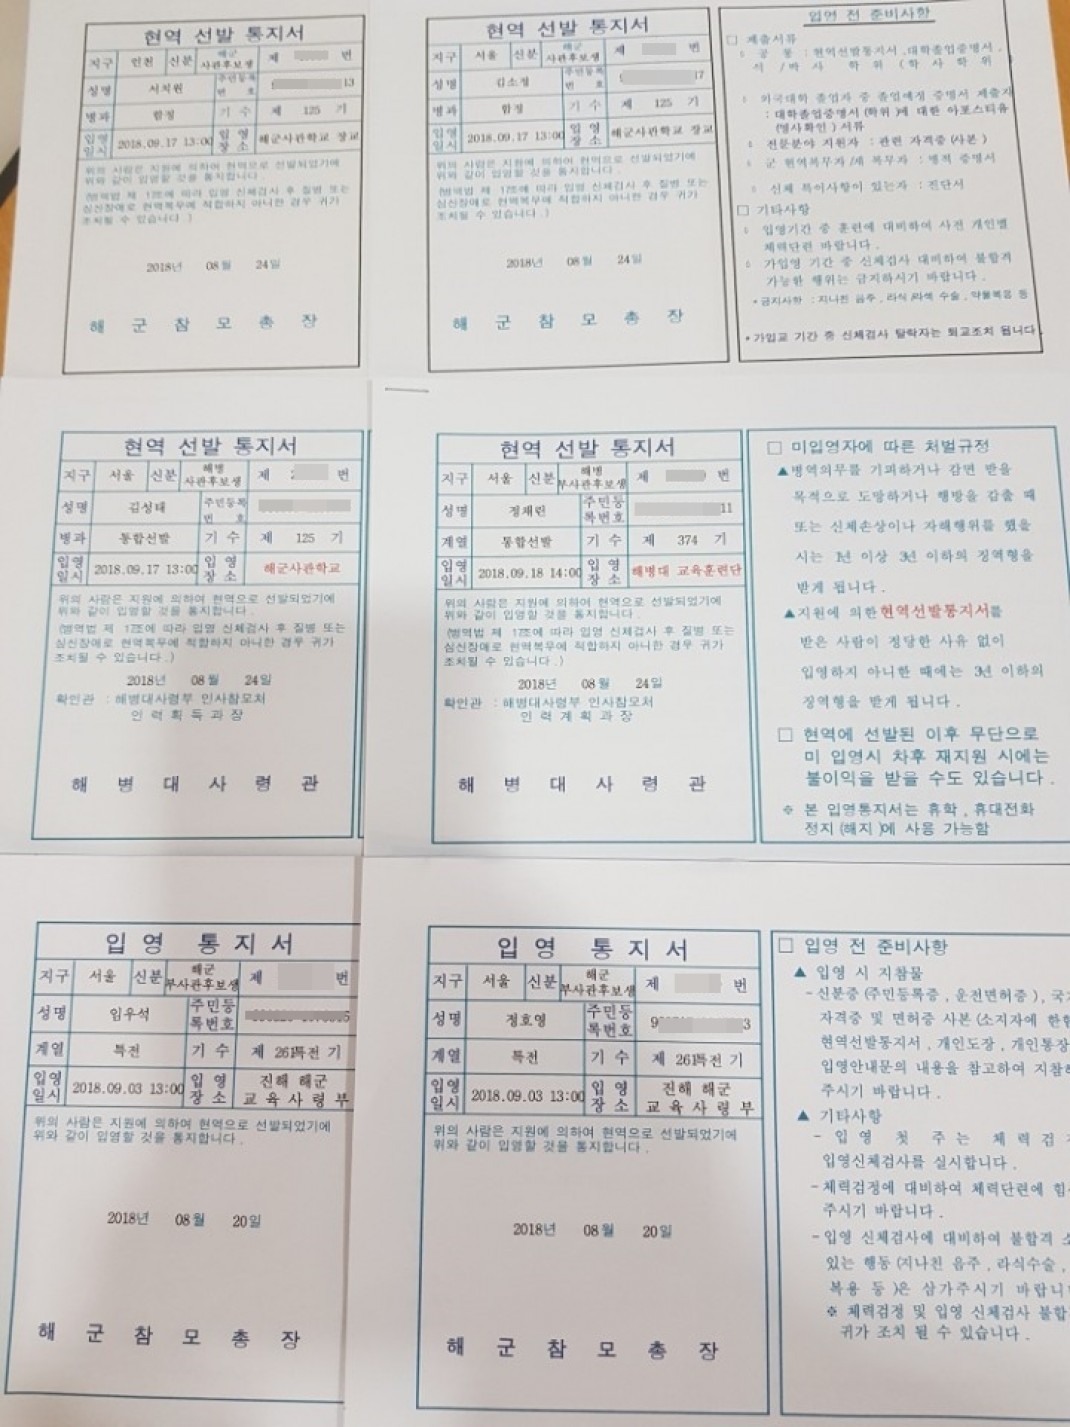 현역 선발 통지서
지구 인천 신분 해군 사관후보생 제 번
성명 서치원 주민등록번호 13
병과 함정 기수 제 125 기
입영일시 2018.09.17 13:00 입영장소 해군사관학교 장교
위의 사람은 지원에 의하여 현역으로 선발되었기에
위와 같이 입영할 것을 통지합니다.
(병역법 제 17조에 따라 입영 신체검사 후 질병 또는
심신장애로 현역복무에 적합하지 아니한 경우 귀가
조치될 수 있습니다.)
2018년 08월 24일
해군참모총장
현역 선발 통지서
지구 서울 신분 해군 사관후보생 제 번
성명 김소정 주민등록번호 17
병과 함정 기수 제 125 기
입영일시 2018.09.17 13:00 입영장소 해군사관학교 장교
위의 사람은 지원에 의하여 현역으로 선발되었기에
위와 같이 입영할 것을 통지합니다.
(병역법 제 17조에 따라 입영 신체검사 후 질병 또는
심신장애로 현역복무에 적합하지 아니한 경우 귀가
조치될 수 있습니다.)
2018년 08월 24일
해군참모총장
입영 전 준비사항
□ 제출서류
공통 : 현역선발통지서, 대학졸업증명서,
석/박사 학위(학사학위
외국대학 졸업자 중 졸업예정 증명서 제출자
: 대학졸업증명서(학위)에 대한 아포스티유
(영사확인) 서류
전문분야 지원자 : 관련 자격증(사본)
군 현역복무자/재 복무자 : 병적 증명서
신체 특이사항이 있는자 : 진단서
□ 기타사항
입영기간 중 훈련에 대비하여 사전 개인별
체력단련 바랍니다.
가입영 기간 중 신체검사 대비하여 불합격
가능한 행위는 금지하시기 바랍니다.
* 금지사항 : 지나친 음주, 라식/라섹 수술, 약물복용 등
* 가입교 기간 중 신체검사 탈락자는 퇴교조치 됩니다.
현역 선발 통지서
지구 서울 신분 해병 사관후보생 제 2 번
성명 김성태 주민등록번호
병과 통합선발 기수 제 125 기
입영일시 2018.09.17 13:00 입영장소 해군사관학교
위의 사람은 지원에 의하여 현역으로 선발되었기에
위와 같이 입영할 것을 통지합니다.
(병역법 제 17조에 따라 입영 신체검사 후 질병 또는
심신장애로 현역복무에 적합하지 아니한 경우 귀가
조치될 수 있습니다.)
2018년 08월 24일
확인관 : 해병대사령부 인사참모처
인력획득과장
해병대사령관
현역 선발 통지서
지구 서울 신분 해병 부사관후보생 제 번
성명 정재린 주민등록번호 11
계열 통합선발 기수 제 374 기
입영일시 2018.09.18 14:00 입영장소 해병대 교육훈련단
위의 사람은 지원에 의하여 현역으로 선발되었기에
위와 같이 입영할 것을 통지합니다.
(병역법 제 17조에 따라 입영 신체검사 후 질병 또는
심신장애로 현역복무에 적합하지 아니한 경우 귀가
조치될 수 있습니다.)
2018년 08월 24일
확인관 : 해병대사령부 인사참모처
인력계획과장
해병대사령관
□ 미입영자에 따른 처벌규정
▲병역의무를 기피하거나 감면 받을
목적으로 도망하거나 행방을 감출 때
또는 신체손상이나 자해행위를 했을
시는 1년 이상 3년 이하의 징역형을
받게 됩니다.
▲지원에 의한 현역선발통지서를
받은 사람이 정당한 사유 없이
입영하지 아니한 때에는 3년 이하의
징역형을 받게 됩니다.
□ 현역에 선발된 이후 무단으로
미 입영시 차후 재지원 시에는
불이익을 받을 수도 있습니다.
※ 본 입영통지서는 휴학, 휴대전화
정지(해지)에 사용 가능함
입영 통지서
지구 서울 신분 해군 부사관후보생 제 번
성명 임우석 주민등록번호
계열 특전 기수 제 261특전 기
입영일시 2018.09.03 13:00 입영장소 진해 해군 교육사령부
위의 사람은 지원에 의하여 현역으로 선발되었기에
위와 같이 입영할 것을 통지합니다.
2018년 08월 20일
해군참모총장
입영 통지서
지구 서울 신분 해군 부사관후보생 제 번
성명 정호영 주민등록번호 9 3
계열 특전 기수 제 261특전 기
입영일시 2018.09.03 13:00 입영장소 진해 해군 교육사령부
위의 사람은 지원에 의하여 현역으로 선발되었기에
위와 같이 입영할 것을 통지합니다.
2018년 08월 20일
해군참모총장
□ 입영 전 준비사항
▲ 입영 시 지참물
- 신분증(주민등록증, 운전면허증), 국가
자격증 및 면허증 사본(소지자에 한함
현역선발통지서, 개인도장, 개인통장
입영안내문의 내용을 참고하여 지참하
주시기 바랍니다.
▲ 기타사항
- 입영 첫 주는 체력검
입영신체검사를 실시합니다.
- 체력검정에 대비하여 체력단련에 힘
주시기 바랍니다.
- 입영 신체검사에 대비하여 불합격 소
있는 행동(지나친 음주, 라식수술,
복용 등)은 삼가주시기 바랍니
※ 체력검정 및 입영 신체검사 불합
귀가 조치 될 수 있습니다.